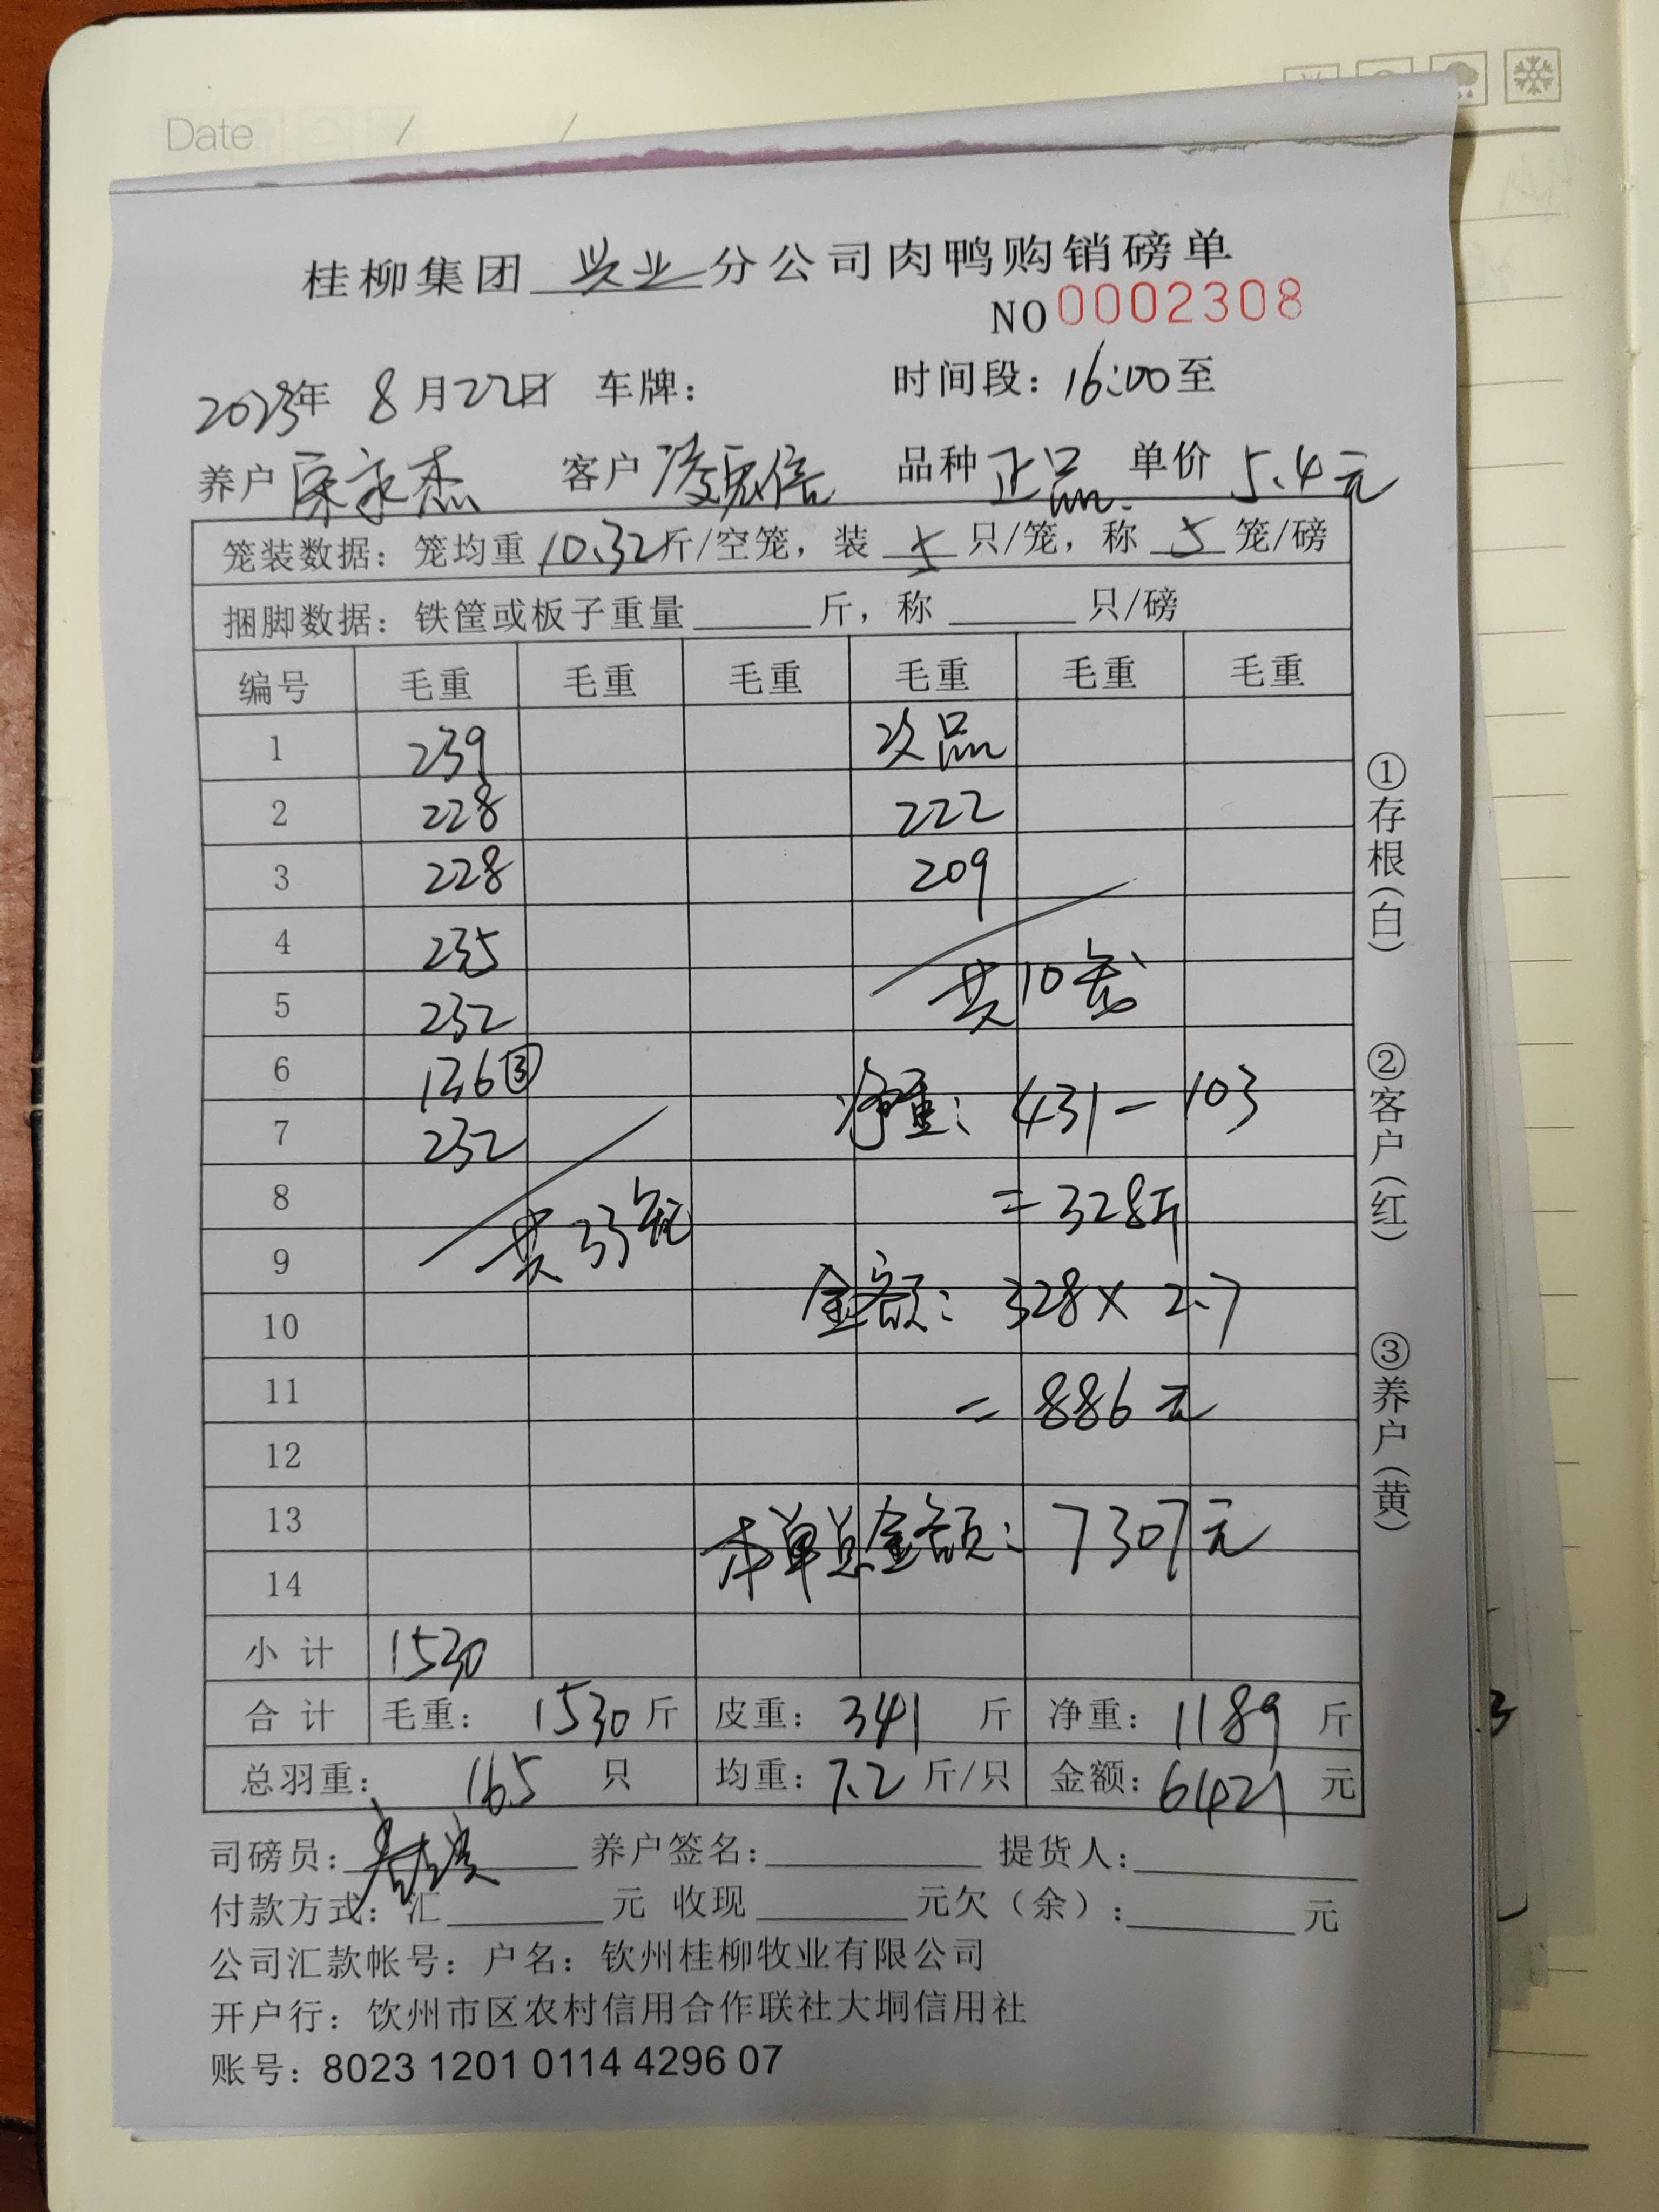 Date / /
桂柳集团 兴业 分公司肉鸭购销磅单
NO 0002308
2023年 8月22日 车牌： 时间段：16:00至
养户 永杰 客户 凌 信 品种 正品 单价 5.4元
笼装数据：笼均重 10.32 斤/空笼，装 5 只/笼，称 5 笼/磅
捆脚数据：铁筐或板子重量 斤，称 只/磅
编号 毛重 毛重 毛重 毛重 毛重 毛重
1 239 次品
2 228 222
3 228 209
4 235 共10笼
5 232
6 136③ 净重：431-103
7 232
8 共33笼 =328斤
9 金额：328×2.7
10
11 =886元
12
13 本单总金额：7307元
14
小计 1530
合计 毛重：1530斤 皮重：341 斤 净重：1189 斤
总羽重：165 只 均重：7.2 斤/只 金额：6421 元
司磅员： 养户签名： 提货人：
付款方式：汇 元 收现 元欠（余）： 元
公司汇款帐号：户名：钦州桂柳牧业有限公司
开户行：钦州市区农村信用合作联社大垌信用社
账号：8023 1201 0114 4296 07
①存根（白）
②客户（红）
③养户（黄）